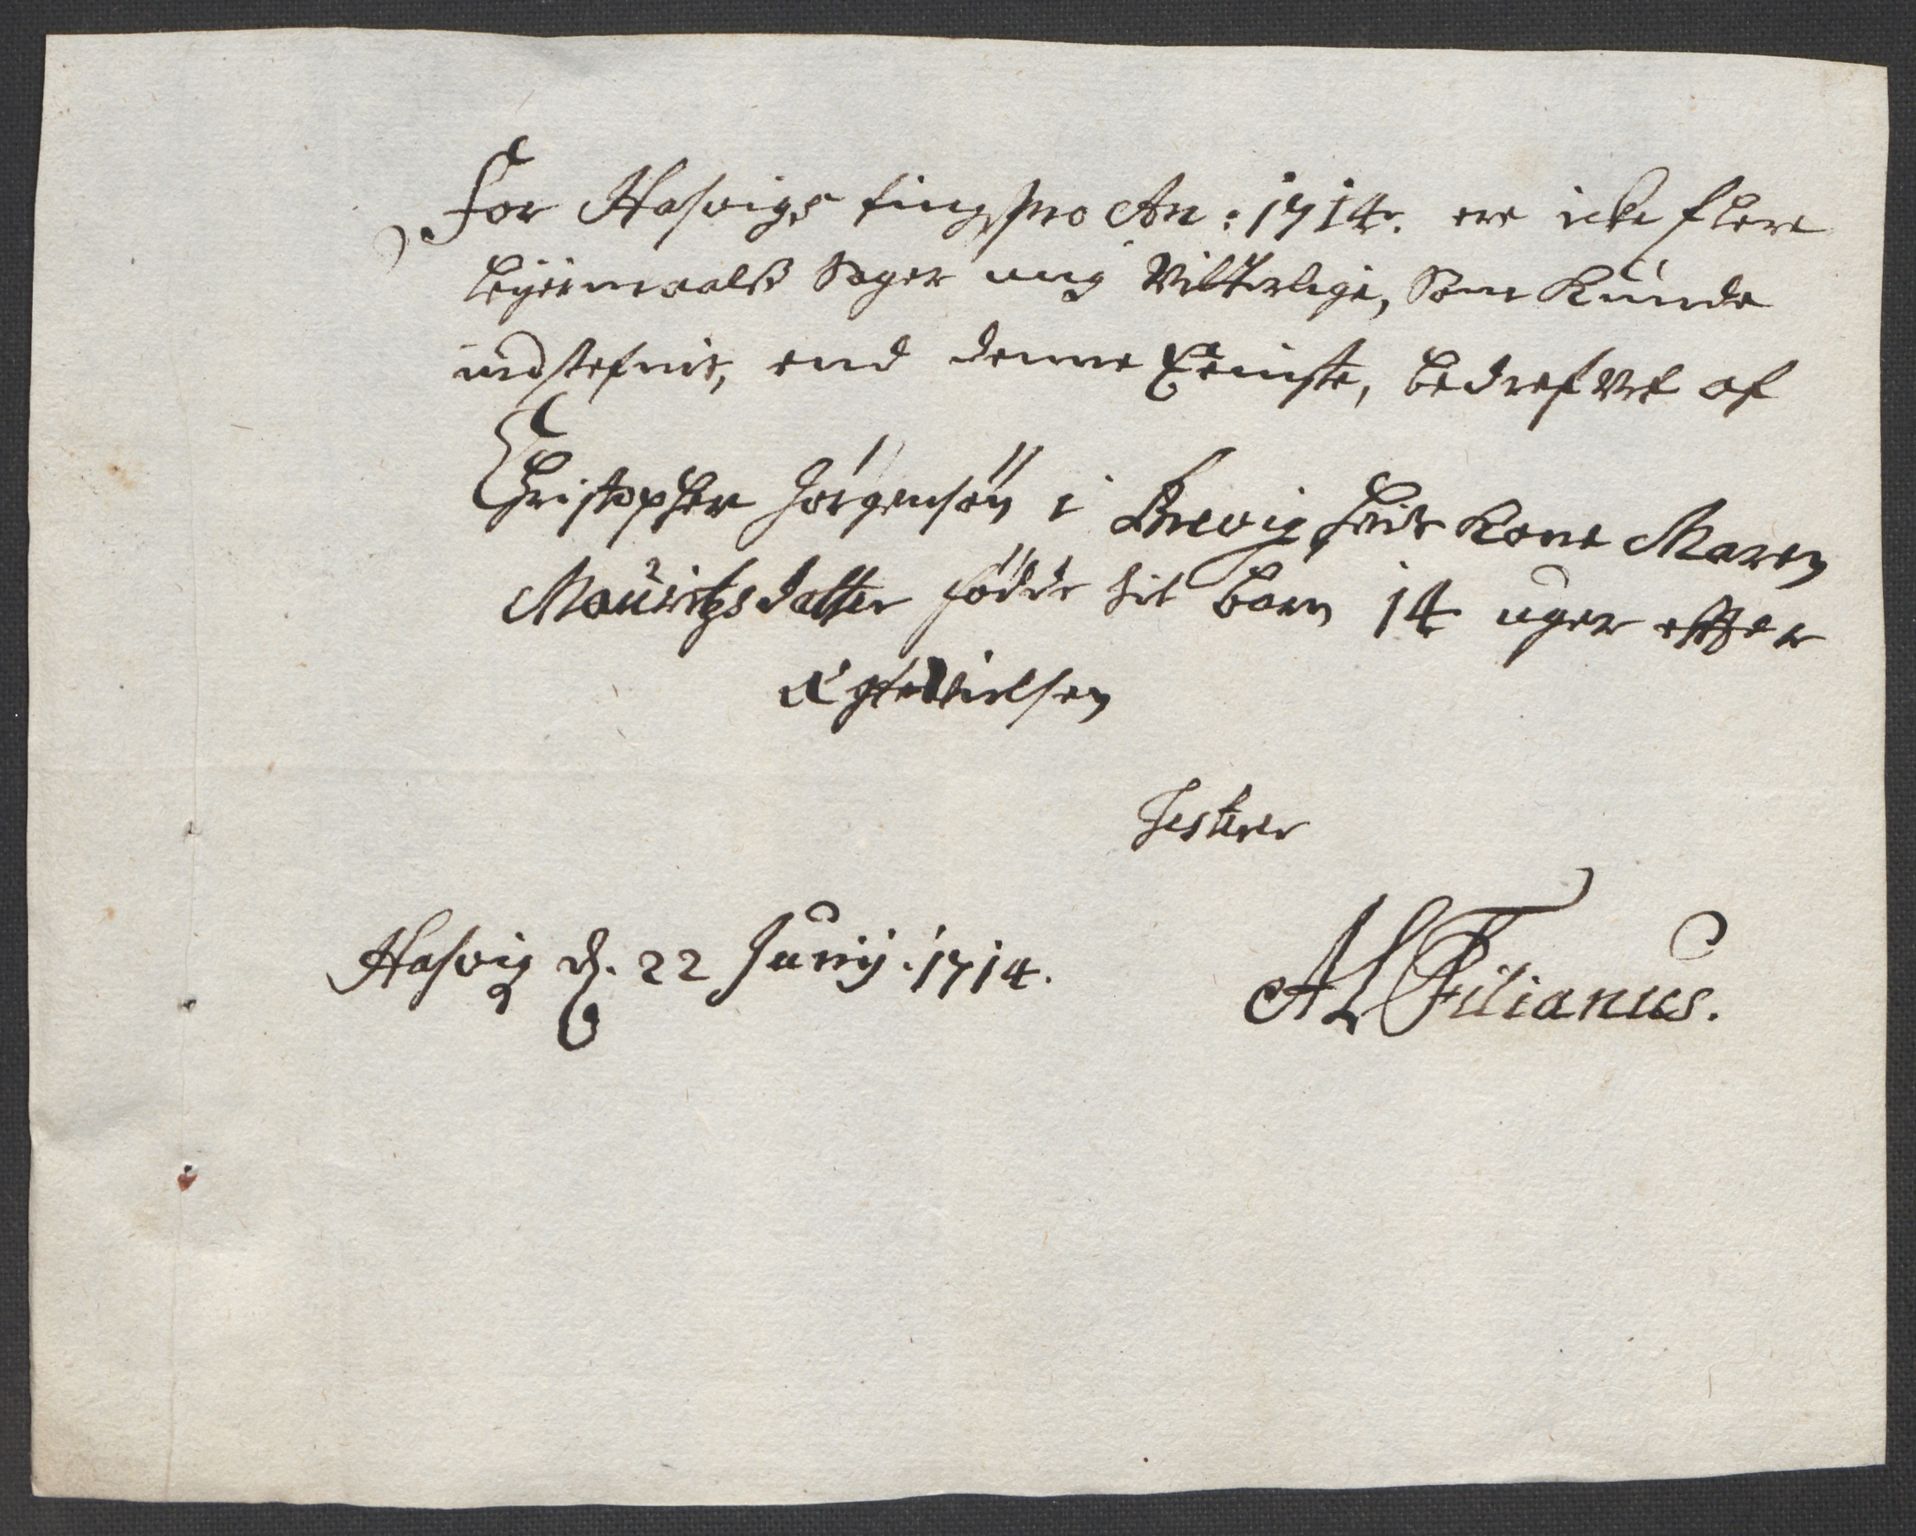 For Hasvigs ting pro An: 1714. ere icke flere
leÿermaalß Sager mig Vitterlige, Som Kunde
indstefnis, end denne Eeniste, bedrefvet af
Christopher Jörgensön i Brevig hvis Kone Maren
Mauritzsdatter födde sit barn 14 uger efter
Egtevielsen
Testerer
Hasvig d. 22 Junij. 1714.
AL Filianus.